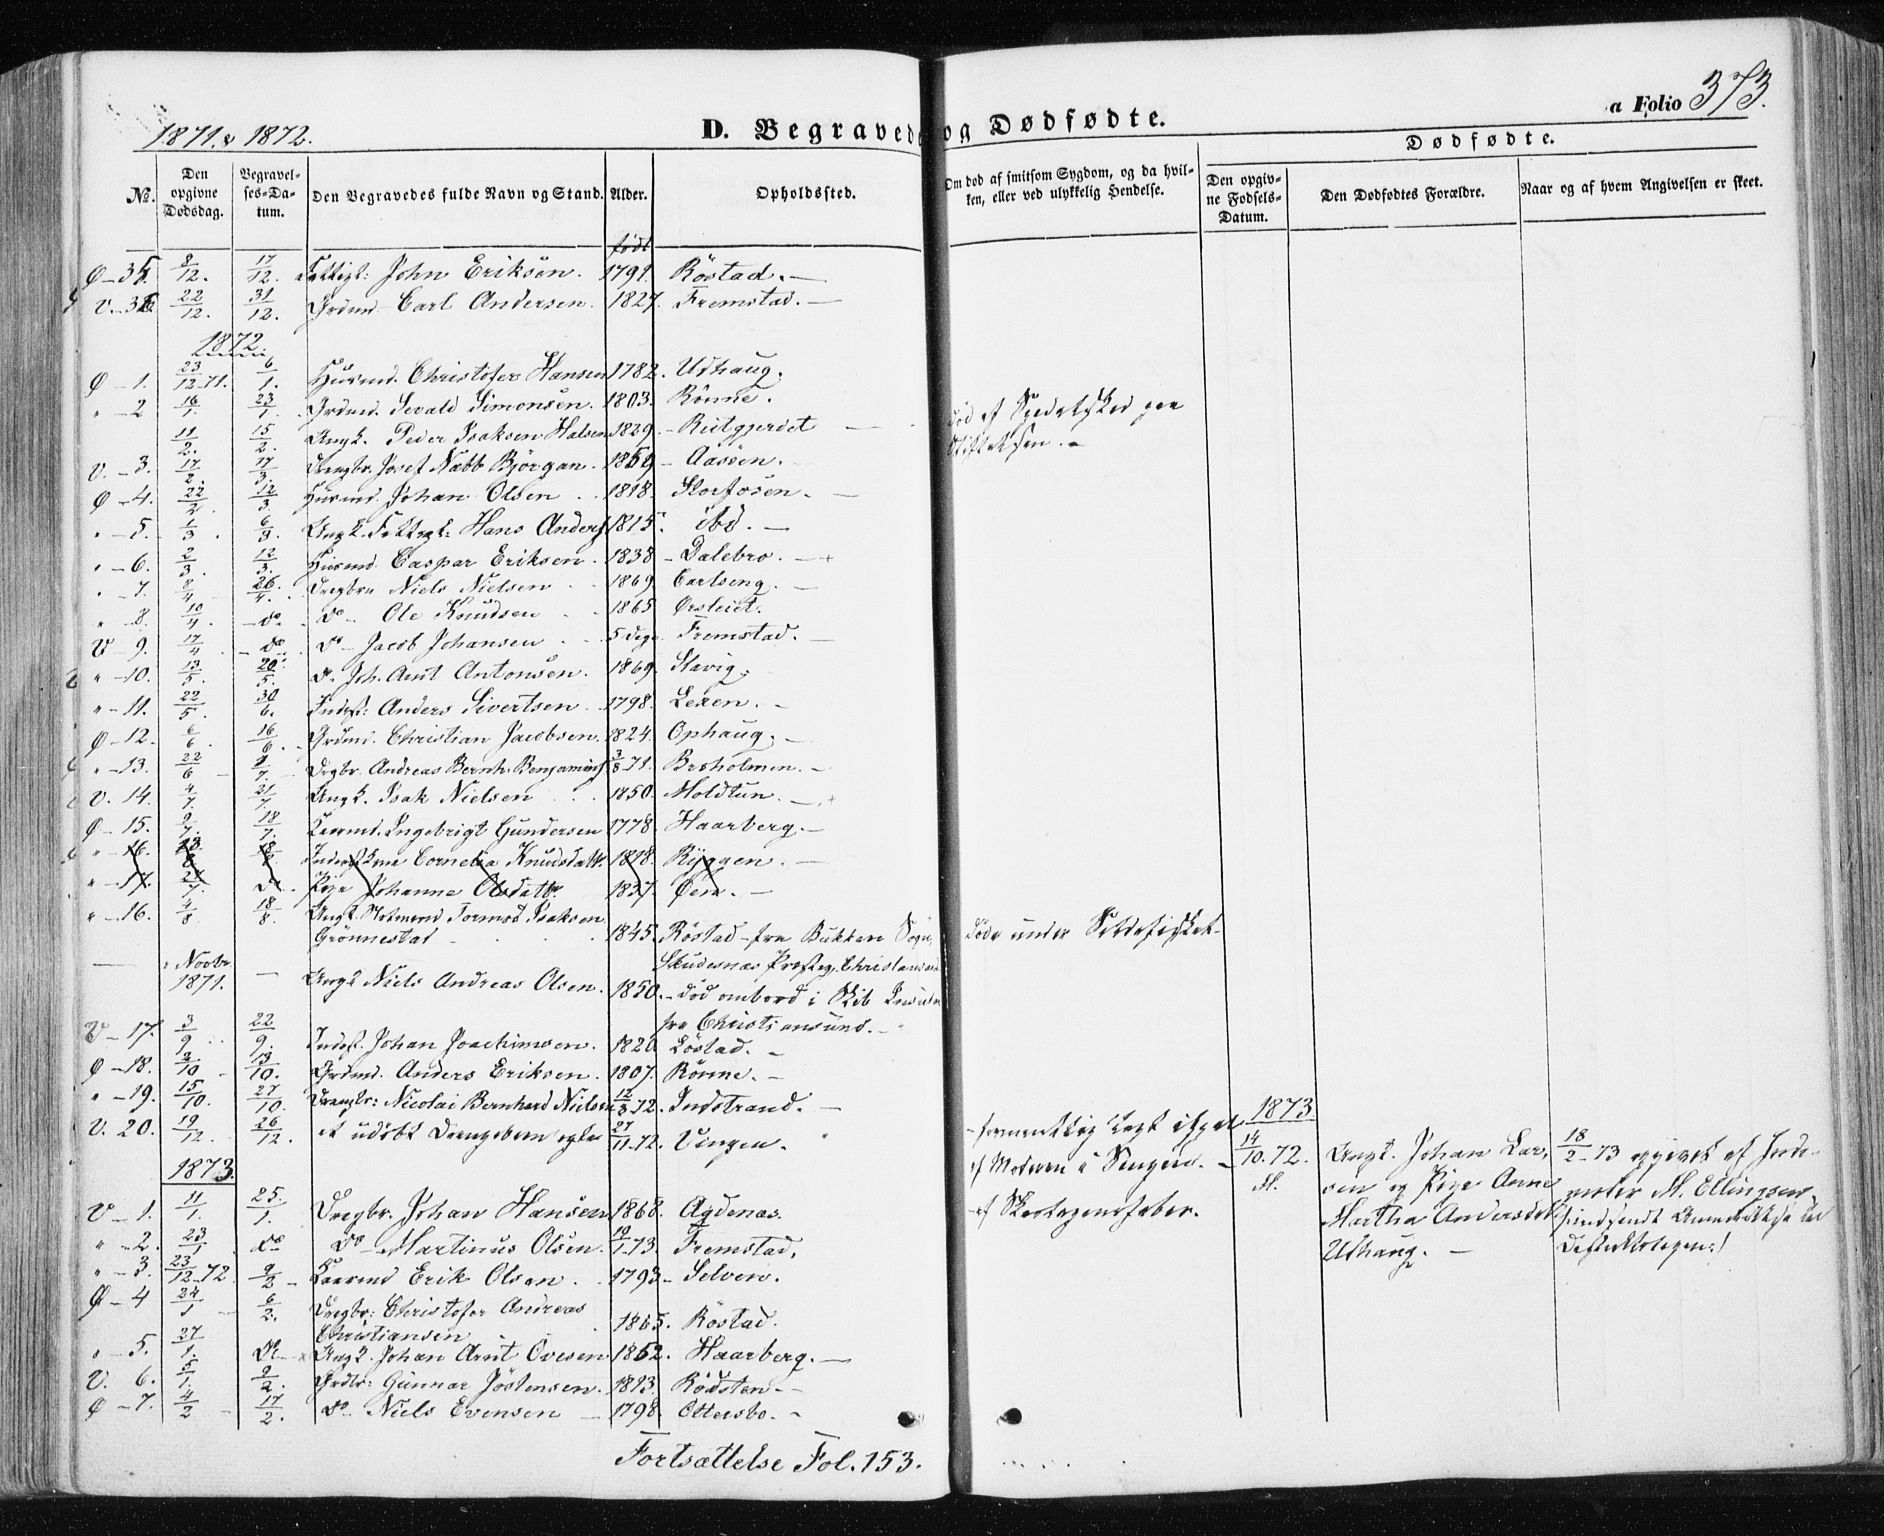 1871 & 1872.
D. Begravede og Dødfødte.
a Folio 373.
Dødfødte.
No.
Den opgivne Dødsdag.
Begravelses-Datum.
Den Begravedes fulde Navn og Stand.
Alder.
Opholdssted.
Om død af smitsom Sygdom, og da hvilken, eller ved ulykkelig Hendelse.
Den opgivne Fødsels-Datum.
Den Dødfødtes Forældre.
Naar og af hvem Angivelsen er skeet.
født
Ø - 35. 8/12. 17/12. John Eriksen. 1791. Röstad. -
V. - 36. 22/12. 31/12. Grdmd. Carl Andersen. 1827. Fremstad. -
1872.
Ø - 1. 23/12-71. 6/1. Huusmd. Christofer Hansen 1782. Udhaug.
" - 2 16/1. 23/1. Grdmd. Sevald Simonsen. 1803. Rönne.
11/2. 15/2. Ungk. Peder Isaksen Halsen 1829.
død af Spedalskhed paa
Stiftelsen. -
V. - 3. 17/2. 17/3. Drengbr. Josef Næbb Bjørgan. 1859 - Aasen.
Ø - 4. 22/2. 12/3. Huusmd. Johan Olsen 1818. Storfosen. -
" - 5. 1/3. 6/3. Ungk. Hans Anders 1815. ibd. -
" - 6. 2/3. 12/3. Huusmd. Caspar Eriksen. 1838 - Dalebro. - +
" - 7. 8/4 26/4. Drengbrn Niels Nielsen 1869. Carlseng. -
" - 8. 10/4. - do. Do - Ole Knudsen 1865 Ørsleiet.
V - 9. 17/4 - do. Do - Jacob Johansen 5 Dage Fremstad. -
" - 10. 13/5. 20/5. Do. Joh. Arnt Antonsen. 1869. Slavig.
" - 11. 22/5. 30/6. Inderst: Anders Sivertsen. 1798. Lexen. -
Ø - 12. 6/6. 16/6. Grdmd. Christian Jacobsen. 1824. Ophaug. -
" - 13. 22/6 /7. Drgbr. Andreas Bernh. Benjamins 3/8-71. Breholmen. -
V. 14. 4/7. 21/7 Ungk. Isak Nielsen 1850. Moldtun. - +
Ø - 15. 9/7. 18/7. Kaarmd. Ingebrigt Gundersen 1778. Haarberg. -
" - 16. Cornelia Knudsdatt. 1818. Ryggen. -
" - 17. Pige Johanne Olsdattr. 1837. Øen. -
" - 16. 4/8 18/8. Ungk. Tormod Isaksen
Grönnestad 1845. Röstad - fra Bukken Sogn,
Døde under Sildefisket.
Skudesnæs Præsteg. Christiansand
Novbr 1871. - Ungk Niels Andreas Olsen. 1850. - død ombord i Skib
fra Christiansund. -
V - 17. 3/9 22/9. Inderst. Johan Joachimsen. 1820 Löstad. -
Ø - 18. 2/10 13/10. Grdmd. Anders Eriksen. 1807. Rönne. -
" - 19. 15/10. 27/10. Drengbr: Nicolai Bernhard Nielsen 12/3 72. Indstrand. -
V. 20. 19/12. 26/12. et udöbt Drengebarn 27/11-72. Vingen.
- formentlig lagt ihjel
af Moderen i Sengen. -
1873.
14/10. 72. M.
Ungk. Johan Larsen og Pige Anne
Martha Andersdatt.
Udhaug. -
18/2-73 opgivet af
M. Ellingsen
1873.
V - 1. 11/1. 25/1. Drgbr. Johan Hansen 1868. Agdenæs.
- af Skarlagensfeber.
" - 2. 23/1 do Do - Martinus Olsen. 19/1-73. Fremstad.
" - 3. 23/12-72 9/2 Kaarmd Erik Olsen. 1793 - Selven.
Ø - 4 24/1 6/2. Drgbr: Christofer Andreas
Christiansen 1865. Röstad.
" - 5. 27/1. Do - Ungk. Johan Arnt Ovesen 1852. Haarberg. -
V. 6. 5/1. 9/2. Grdbr: Gunnar Jöstensen. 1813. Rödsten -
Ø - 7. 4/2 17/2. Do - Niels Evensen - 1798. Ottersbo. -
Fortsættelse Fol. 153.